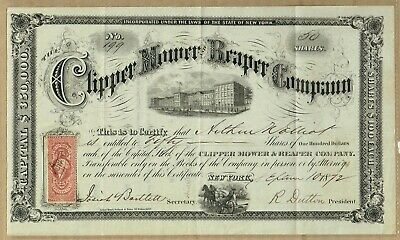 INCORPORATED UNDER THE LAWS OF THE STATE OF NEW YORK.
No. 199
50 SHARES.
THE
Clipper Mower & Reaper Company
CAPITAL $ 350,000.
SHARES $ 100 EACH
This is to Certify that Arthur
is entitled to Fifty Shares of One Hundred Dollars
each of the Capital Stock of the CLIPPER MOWER & REAPER COMPANY.
Transferable only on the Books of the Company in person or by Attorney
on the surrender of this Certificate.
NEW YORK, 10 1872
Josiah Bartlett Secretary
R Dutton President